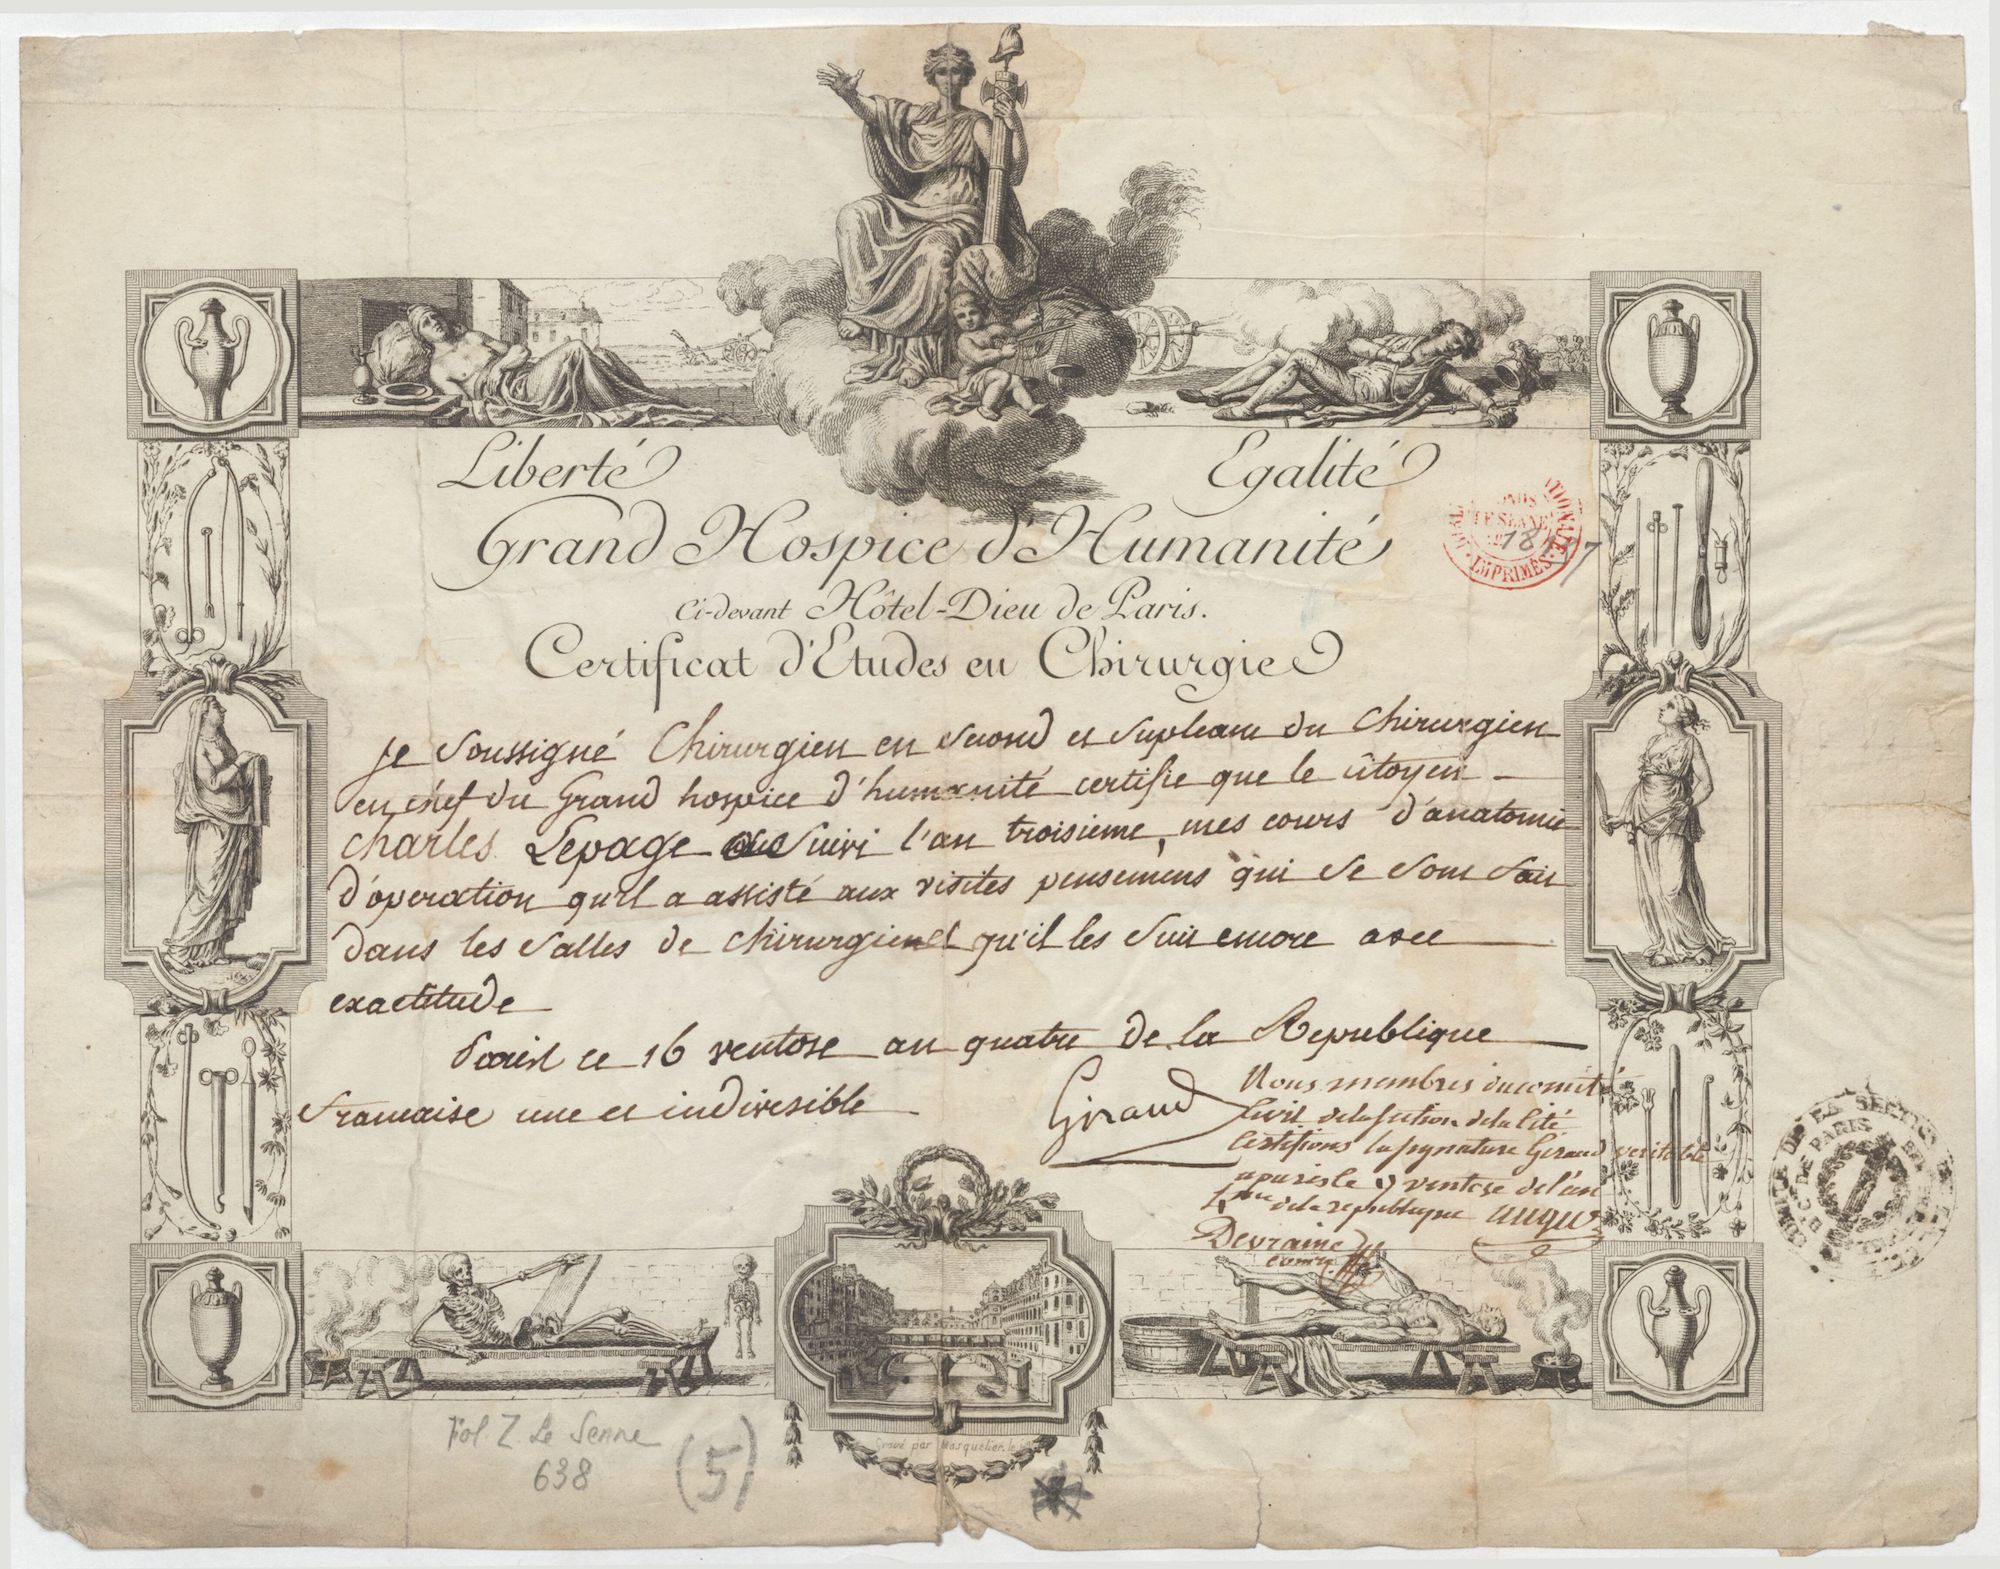 Liberté Egalité
Grand Hospice d'Humanité
Ci-devant Hôtel-Dieu de Paris.
Certificat d'Etudes en Chirurgie
je soussigné Chirurgien en second et supleant du Chirurgien
en chef du Grand hospice d'humanité certifie que le citoyen
Charles Lepage a suivi l'an troisieme, mes cours d'anatomie
d'operation qu'il a assisté aux visites pensemens qui se sont fait
dans les salles de chirurgie et qu'il les suit encore avec
exactitude
Paris ce 16 ventose an quatre de la Republique
francaise une et indivisible
Giraud
Nous membres du comité
Civil de la section de la Cité
Certifions la signature Giraud veritable
a paris le ventose de l'an
4me de la republique
Devraine
LE SENNE
IMPRIMÉS
1817
COMITÉ
DE PARIS
Gravé par Masquelier le
Fol. Z. Le Senne
638
(5)